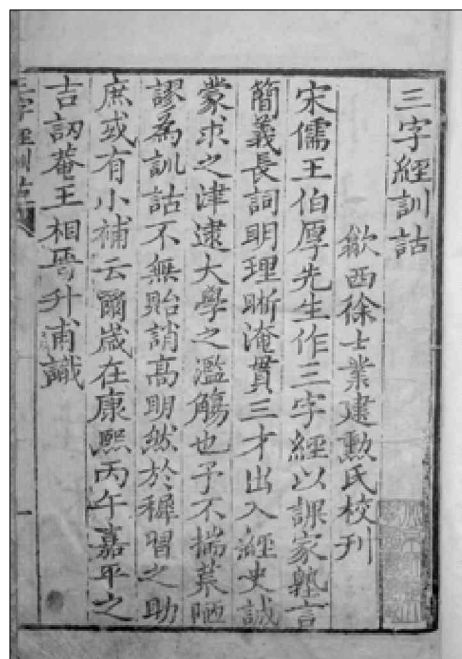 三字經訓詁
歙西徐士業建勲氏校刊
宋儒王伯厚先生作三字經以課家塾言
簡義長詞明理晰淹貫三才出入經史誠
蒙求之津逮大學之濫觴也予不揣菜陋
謬為訓詁不無貽誚高明然於穉習之助
庶或有小補云爾歲在康熙丙午嘉平之
吉訒菴王相晉升甫識
三字經訓詁
一